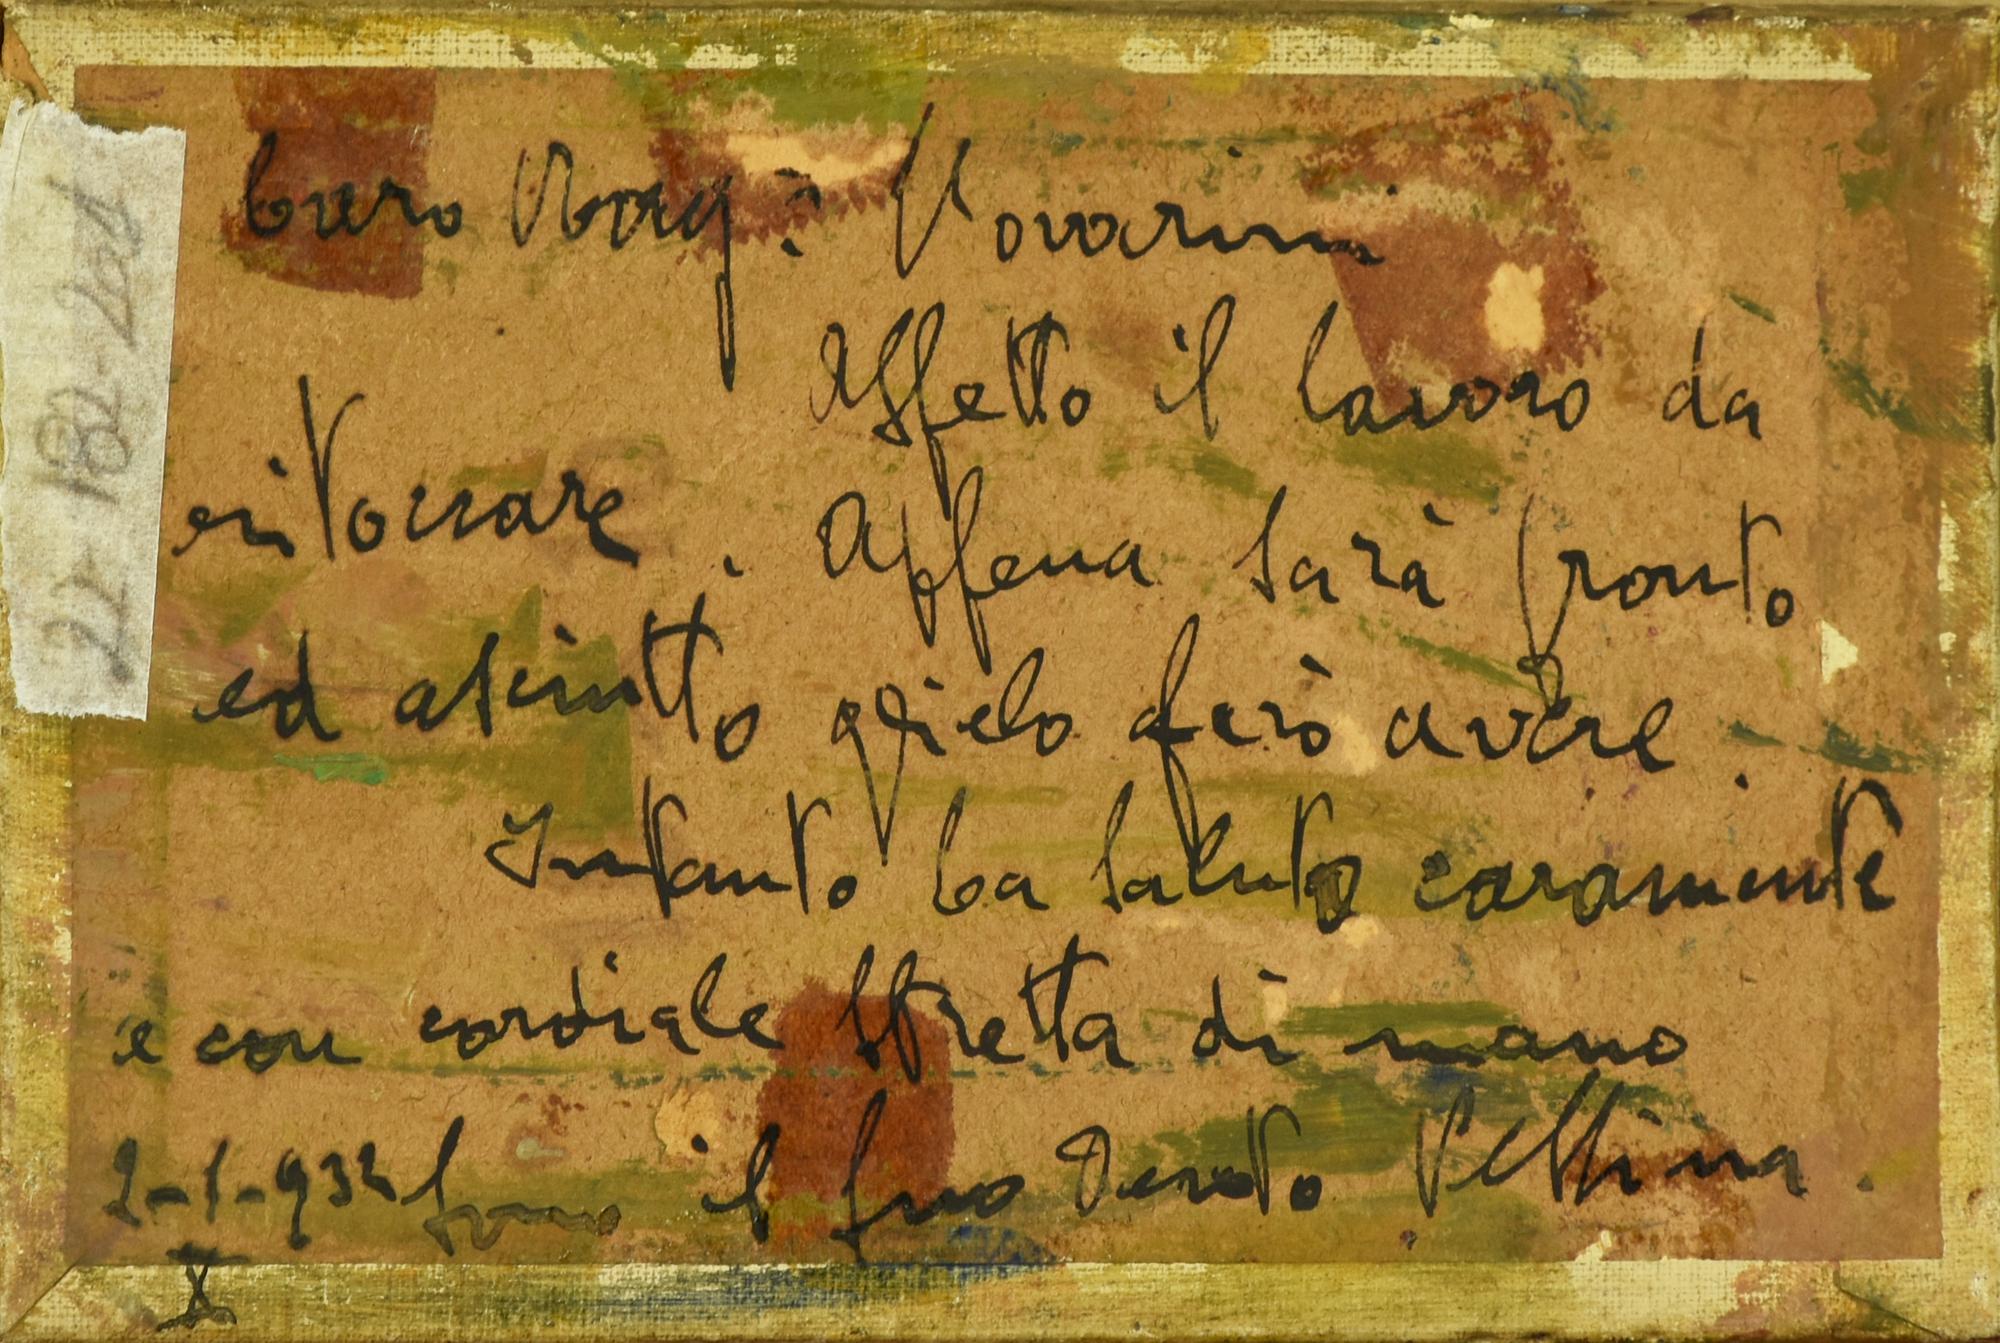 Caro Novarini
Aspetto il lavoro da
ritoccare. Appena sarà pronto
ed asciutto glielo farò avere.
Intanto La saluto caramente
e con cordiale stretta di mano
2-1-932 sono il suo devoto
X